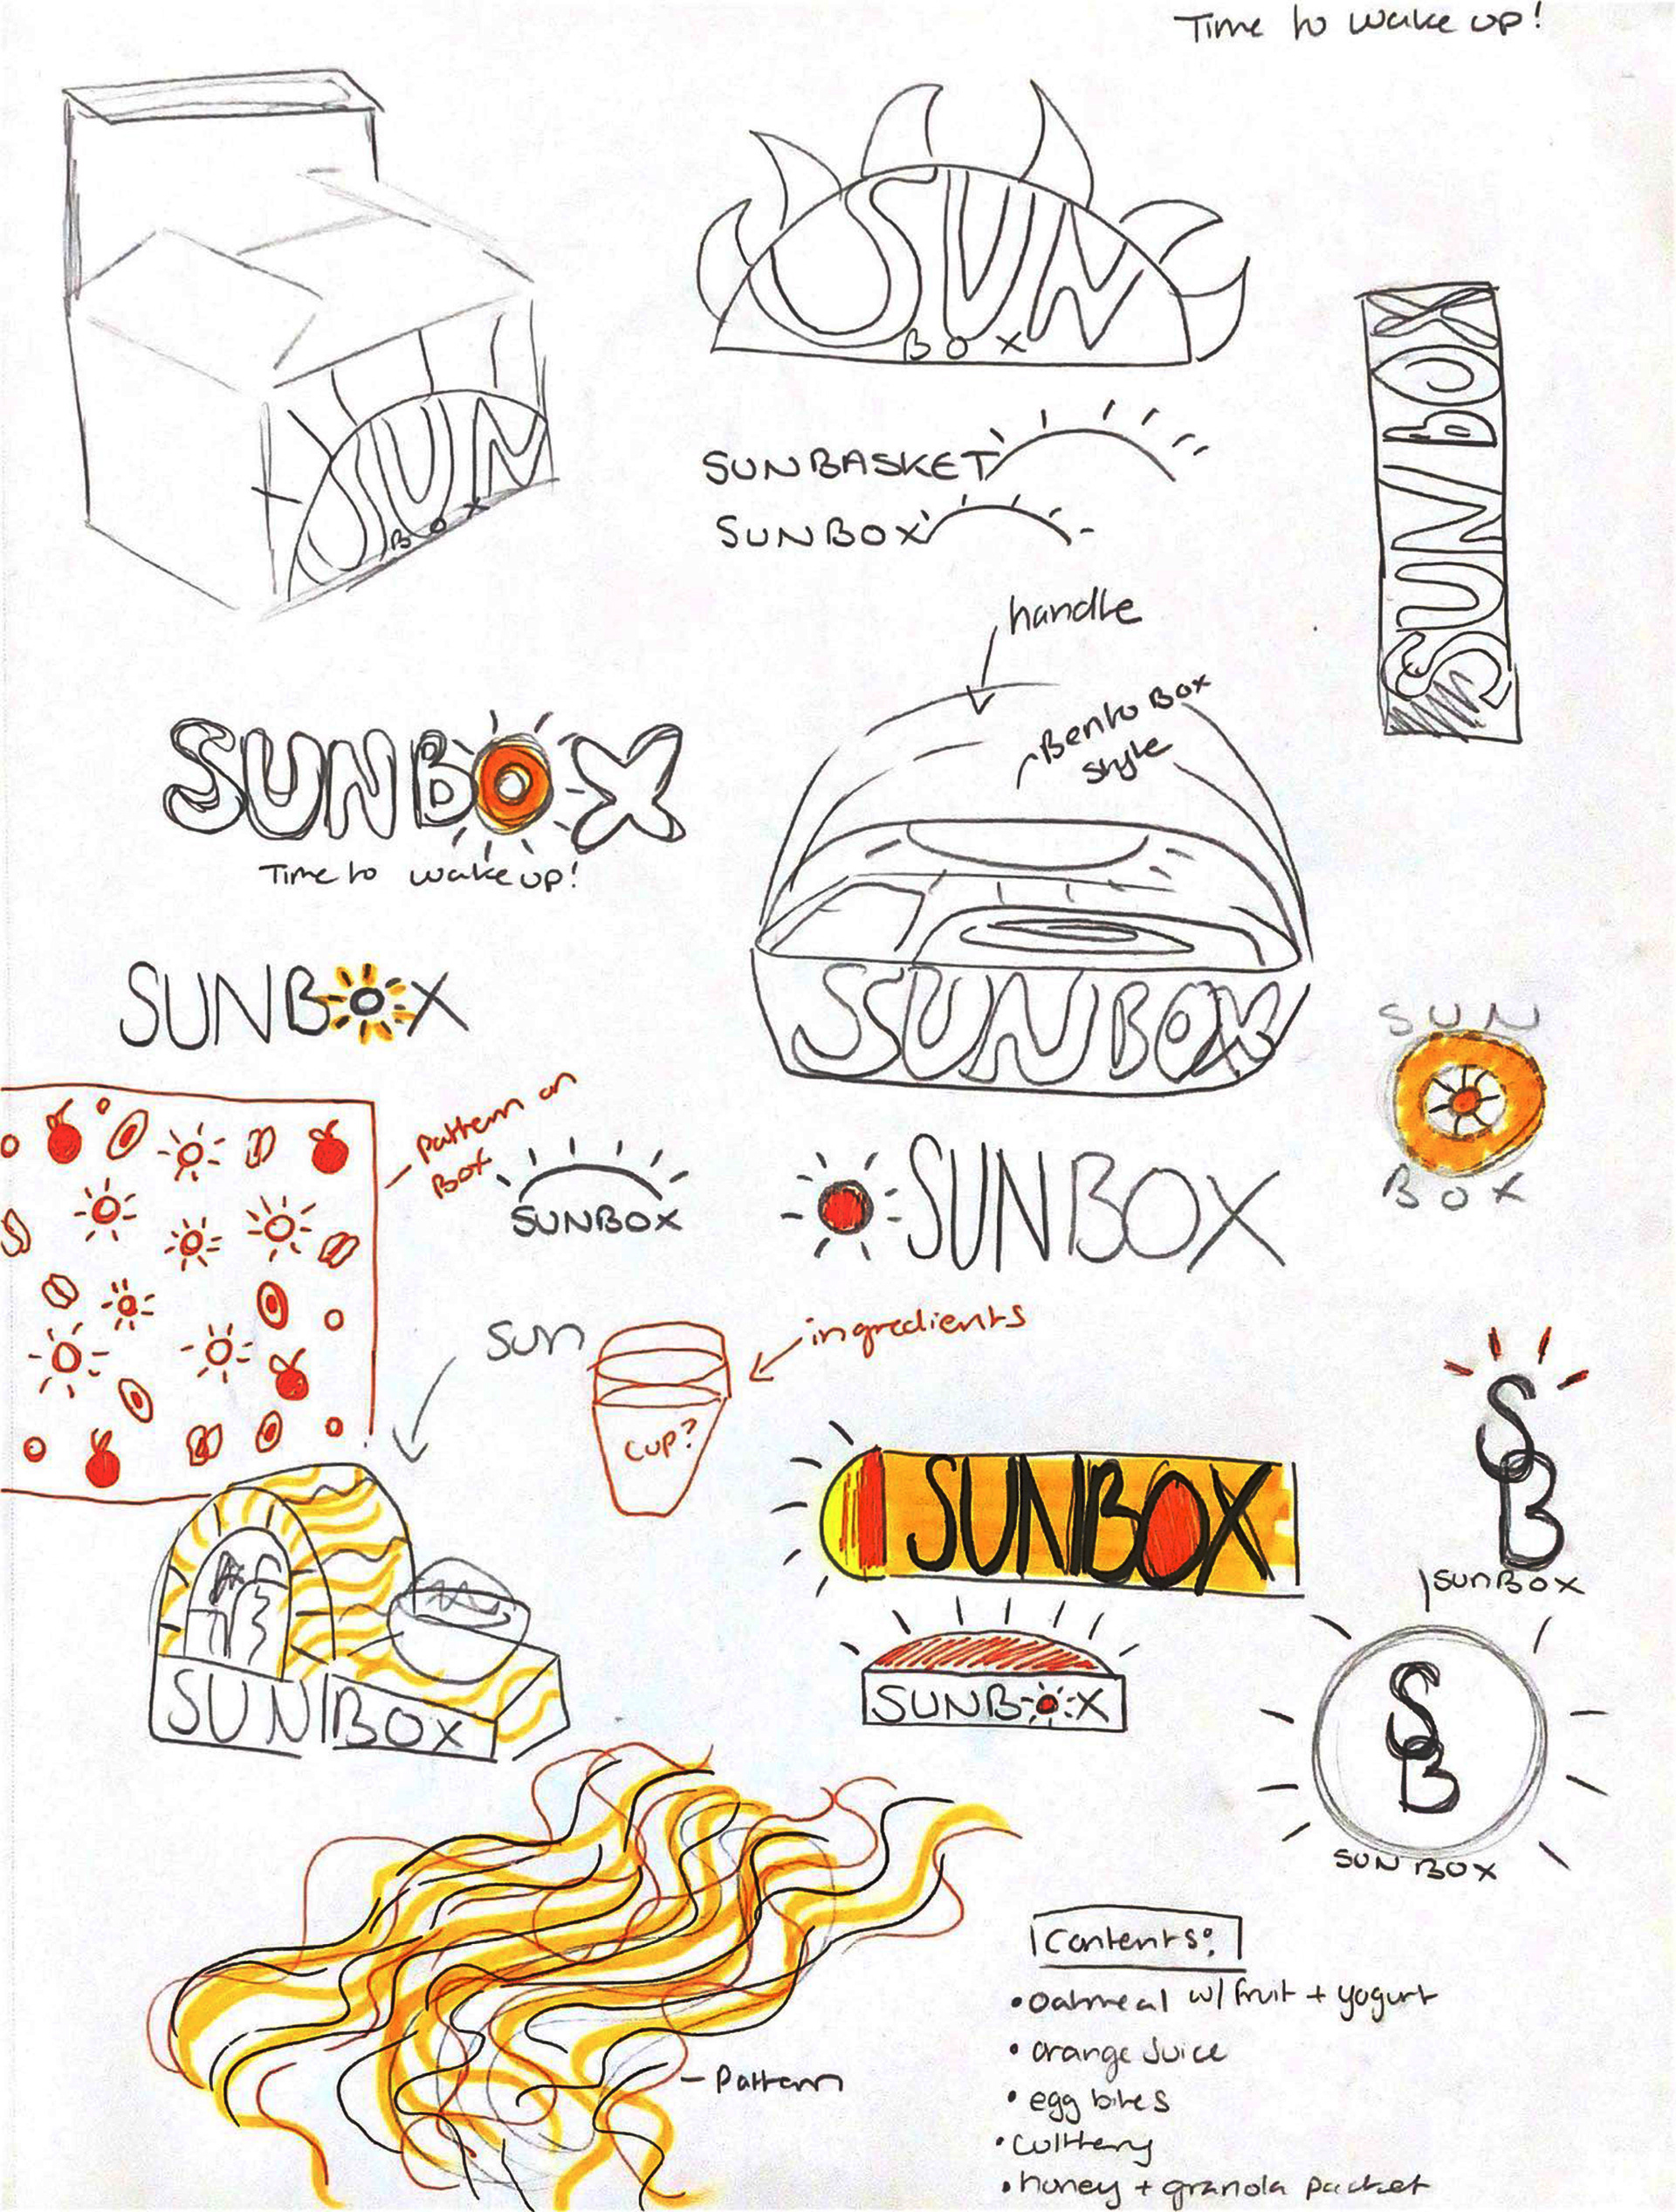 Time to wake up!
SUN
BOX
SUN
BOX
SUNBASKET
SUNBOX
SUN/BOX
handle
Bento Box
style
SUNBOX
Time to wake up!
SUNBOX
SUNBOX
SUN
BOX
Pattern on
Box
SUNBOX
SUNBOX
Sun
ingredients
cup?
SUNBOX
SB
SUNBOX
SUNBOX
SUNBOX
SB
SUNBOX
Contents:
•Oatmeal w/ fruit + yogurt
•orange Juice
•egg bites
•cuttlery
•honey + granola packet
-Pattern